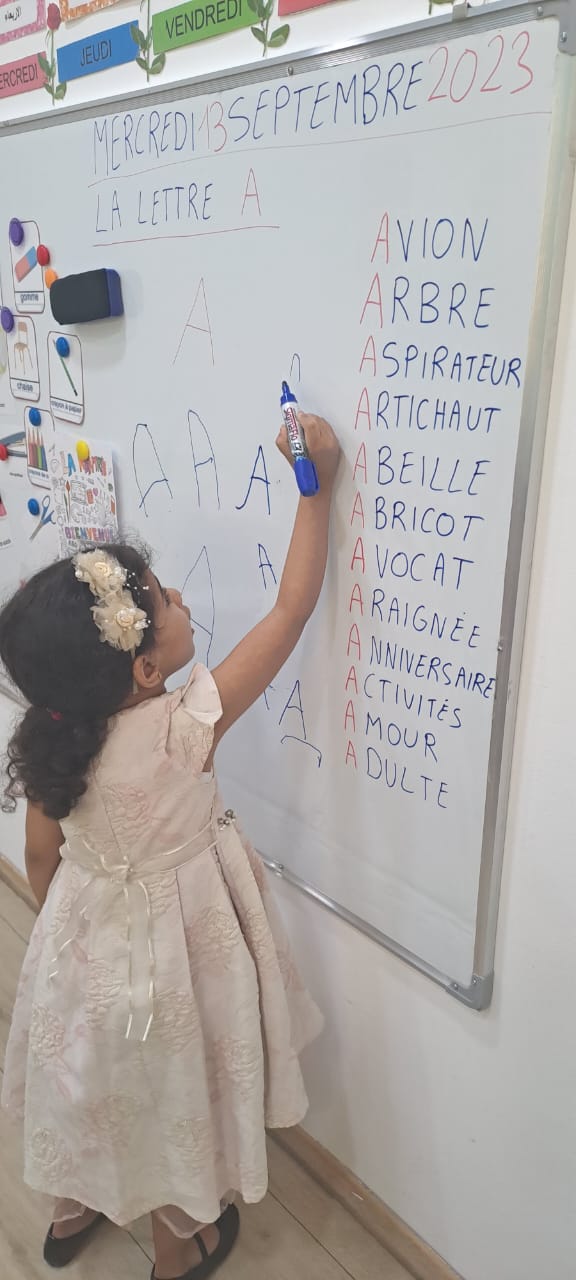 الأربعاء
MERCREDI
JEUDI
VENDREDI
MERCREDI 13 SEPTEMBRE 2023
LA LETTRE A
gomme
chaise
crayon à papier
BIENVENUE
A
A A A
A A
A
AVION
ARBRE
ASPIRATEUR
ARTICHAUT
ABEILLE
ABRICOT
AVOCAT
ARAIGNÉE
ANNIVERSAIRE
ACTIVITÉS
AMOUR
ADULTE